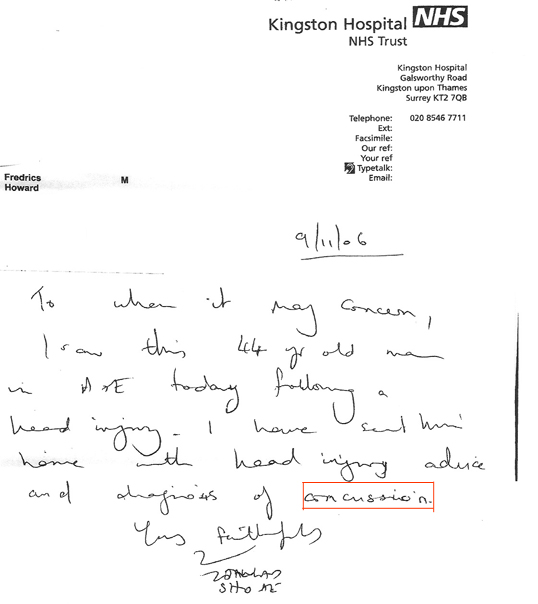 Kingston Hospital NHS
NHS Trust
Kingston Hospital
Galsworthy Road
Kingston upon Thames
Surrey KT2 7QB
Telephone: 020 8546 7711
Ext:
Facsimile:
Our ref:
Your ref
Typetalk:
Email:
Fredrics M
Howard
9/11/06
To whom it may concern,
I saw this 44 yr old man
in A&E today following a
head injury. I have sent him
home with head injury advice
and diagnosis of concussion.
Yours faithfully
SHO AE